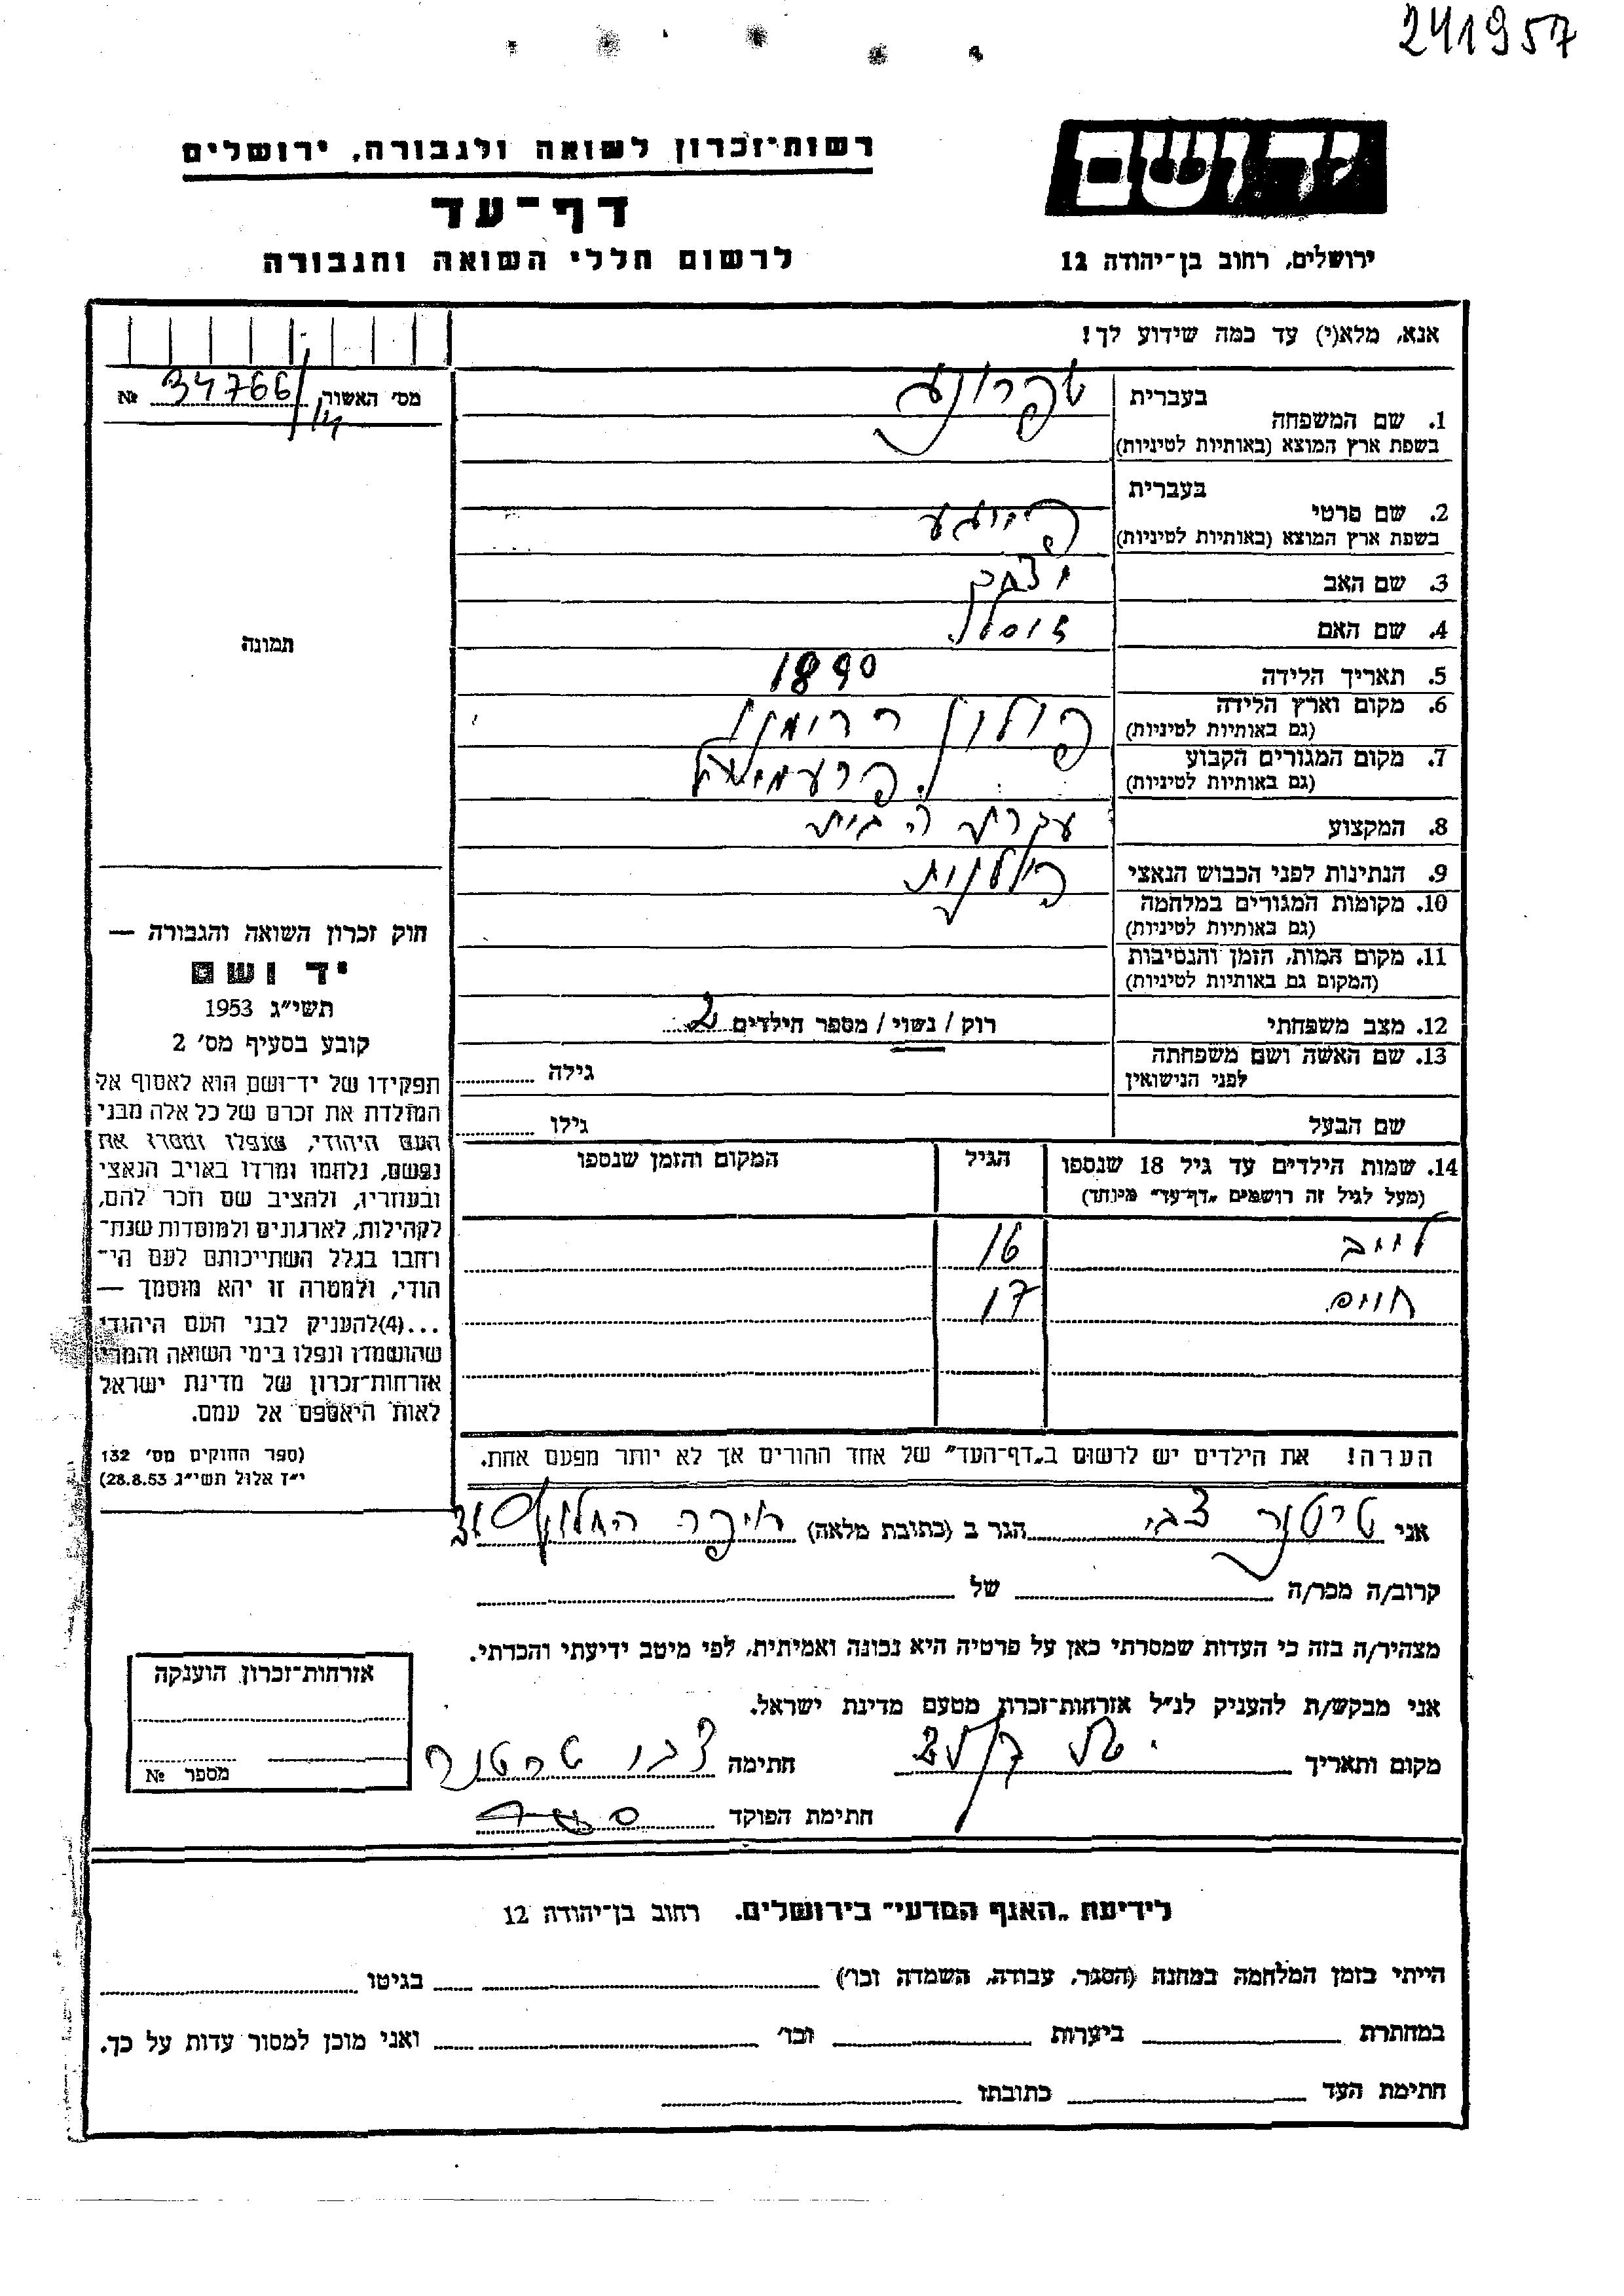 241957
יד ושם
רשות־זכרון לשואה ולגבורה, ירושלים
דף־עד
לרשום חללי השואה והגבורה
ירושלים, רחוב בן־יהודה 12
אנא, מלא(י) עד כמה שידוע לך!
מס׳ האשור 34766/ № 
1. שם המשפחה
בעברית
בשפת ארץ המוצא (באותיות לטיניות)
2. שם פרטי
בעברית
בשפת ארץ המוצא (באותיות לטיניות)
3. שם האב יצחק
4. שם האם
5. תאריך הלידה 1890
6. מקום וארץ הלידה פולין
(גם באותיות לטיניות)
7. מקום המגורים הקבוע
(גם באותיות לטיניות)
8. המקצוע עקרת הבית
9. הנתינות לפני הכבוש הנאצי פולנית
10. מקומות המגורים במלחמה
(גם באותיות לטיניות)
11. מקום המות, הזמן והנסיבות
(המקום גם באותיות לטיניות)
12. מצב משפחתי רוק / נשוי / מספר הילדים 2
13. שם האשה ושם משפחתה
לפני הנישואין
גילה
שם הבעל גילו
14. שמות הילדים עד גיל 18 שנספו הגיל המקום והזמן שנספו
(מעל לגיל זה רושמים „דף־עד״ מיוחד)
לייב 16
חיים 17
הערה! את הילדים יש לרשום ב„דף־העד״ של אחד ההורים אך לא יותר מפעם אחת.
תמונה
חוק זכרון השואה והגבורה —
יד ושם
תשי״ג 1953
קובע בסעיף מס׳ 2
תפקידו של יד־ושם הוא לאסוף אל
המולדת את זכרם של כל אלה מבני
העם היהודי, שנפלו ומסרו את
נפשם, נלחמו ומרדו באויב הנאצי
ובעוזריו, ולהציב שם וזכר להם,
לקהילות, לארגונים ולמוסדות שנח־
רחבו בגלל השתייכותם לעם הי־
הודי, ולמטרה זו יהא מוסמך —
...(4)להעניק לבני העם היהודי
שהושמדו ונפלו בימי השואה והמרי
אזרחות־זכרון של מדינת ישראל
לאות היאספם אל עמם.
(ספר החוקים מס׳ 132
י״ז אלול תשי״ג 28.8.53)
אני צבי הגר ב (כתובת מלאה) חיפה החלוץ 31
קרוב/ה מכר/ה של
מצהיר/ה בזה כי העדות שמסרתי כאן על פרטיה היא נכונה ואמיתית, לפי מיטב ידיעתי והכרתי.
אני מבקש/ת להעניק לנ״ל אזרחות־זכרון מטעם מדינת ישראל.
מקום ותאריך חתימה צבי
חתימת הפוקד
אזרחות־זכרון הוענקה
מספר №
לידיעת „האגף המדעי״ בירושלים. רחוב בן־יהודה 12
הייתי בזמן המלחמה במחנה (הסגר, עבודה, השמדה וכו׳) בגיטו
במחתרת ביערות וכו׳ ואני מוכן למסור עדות על כך.
חתימת העד כתובתו